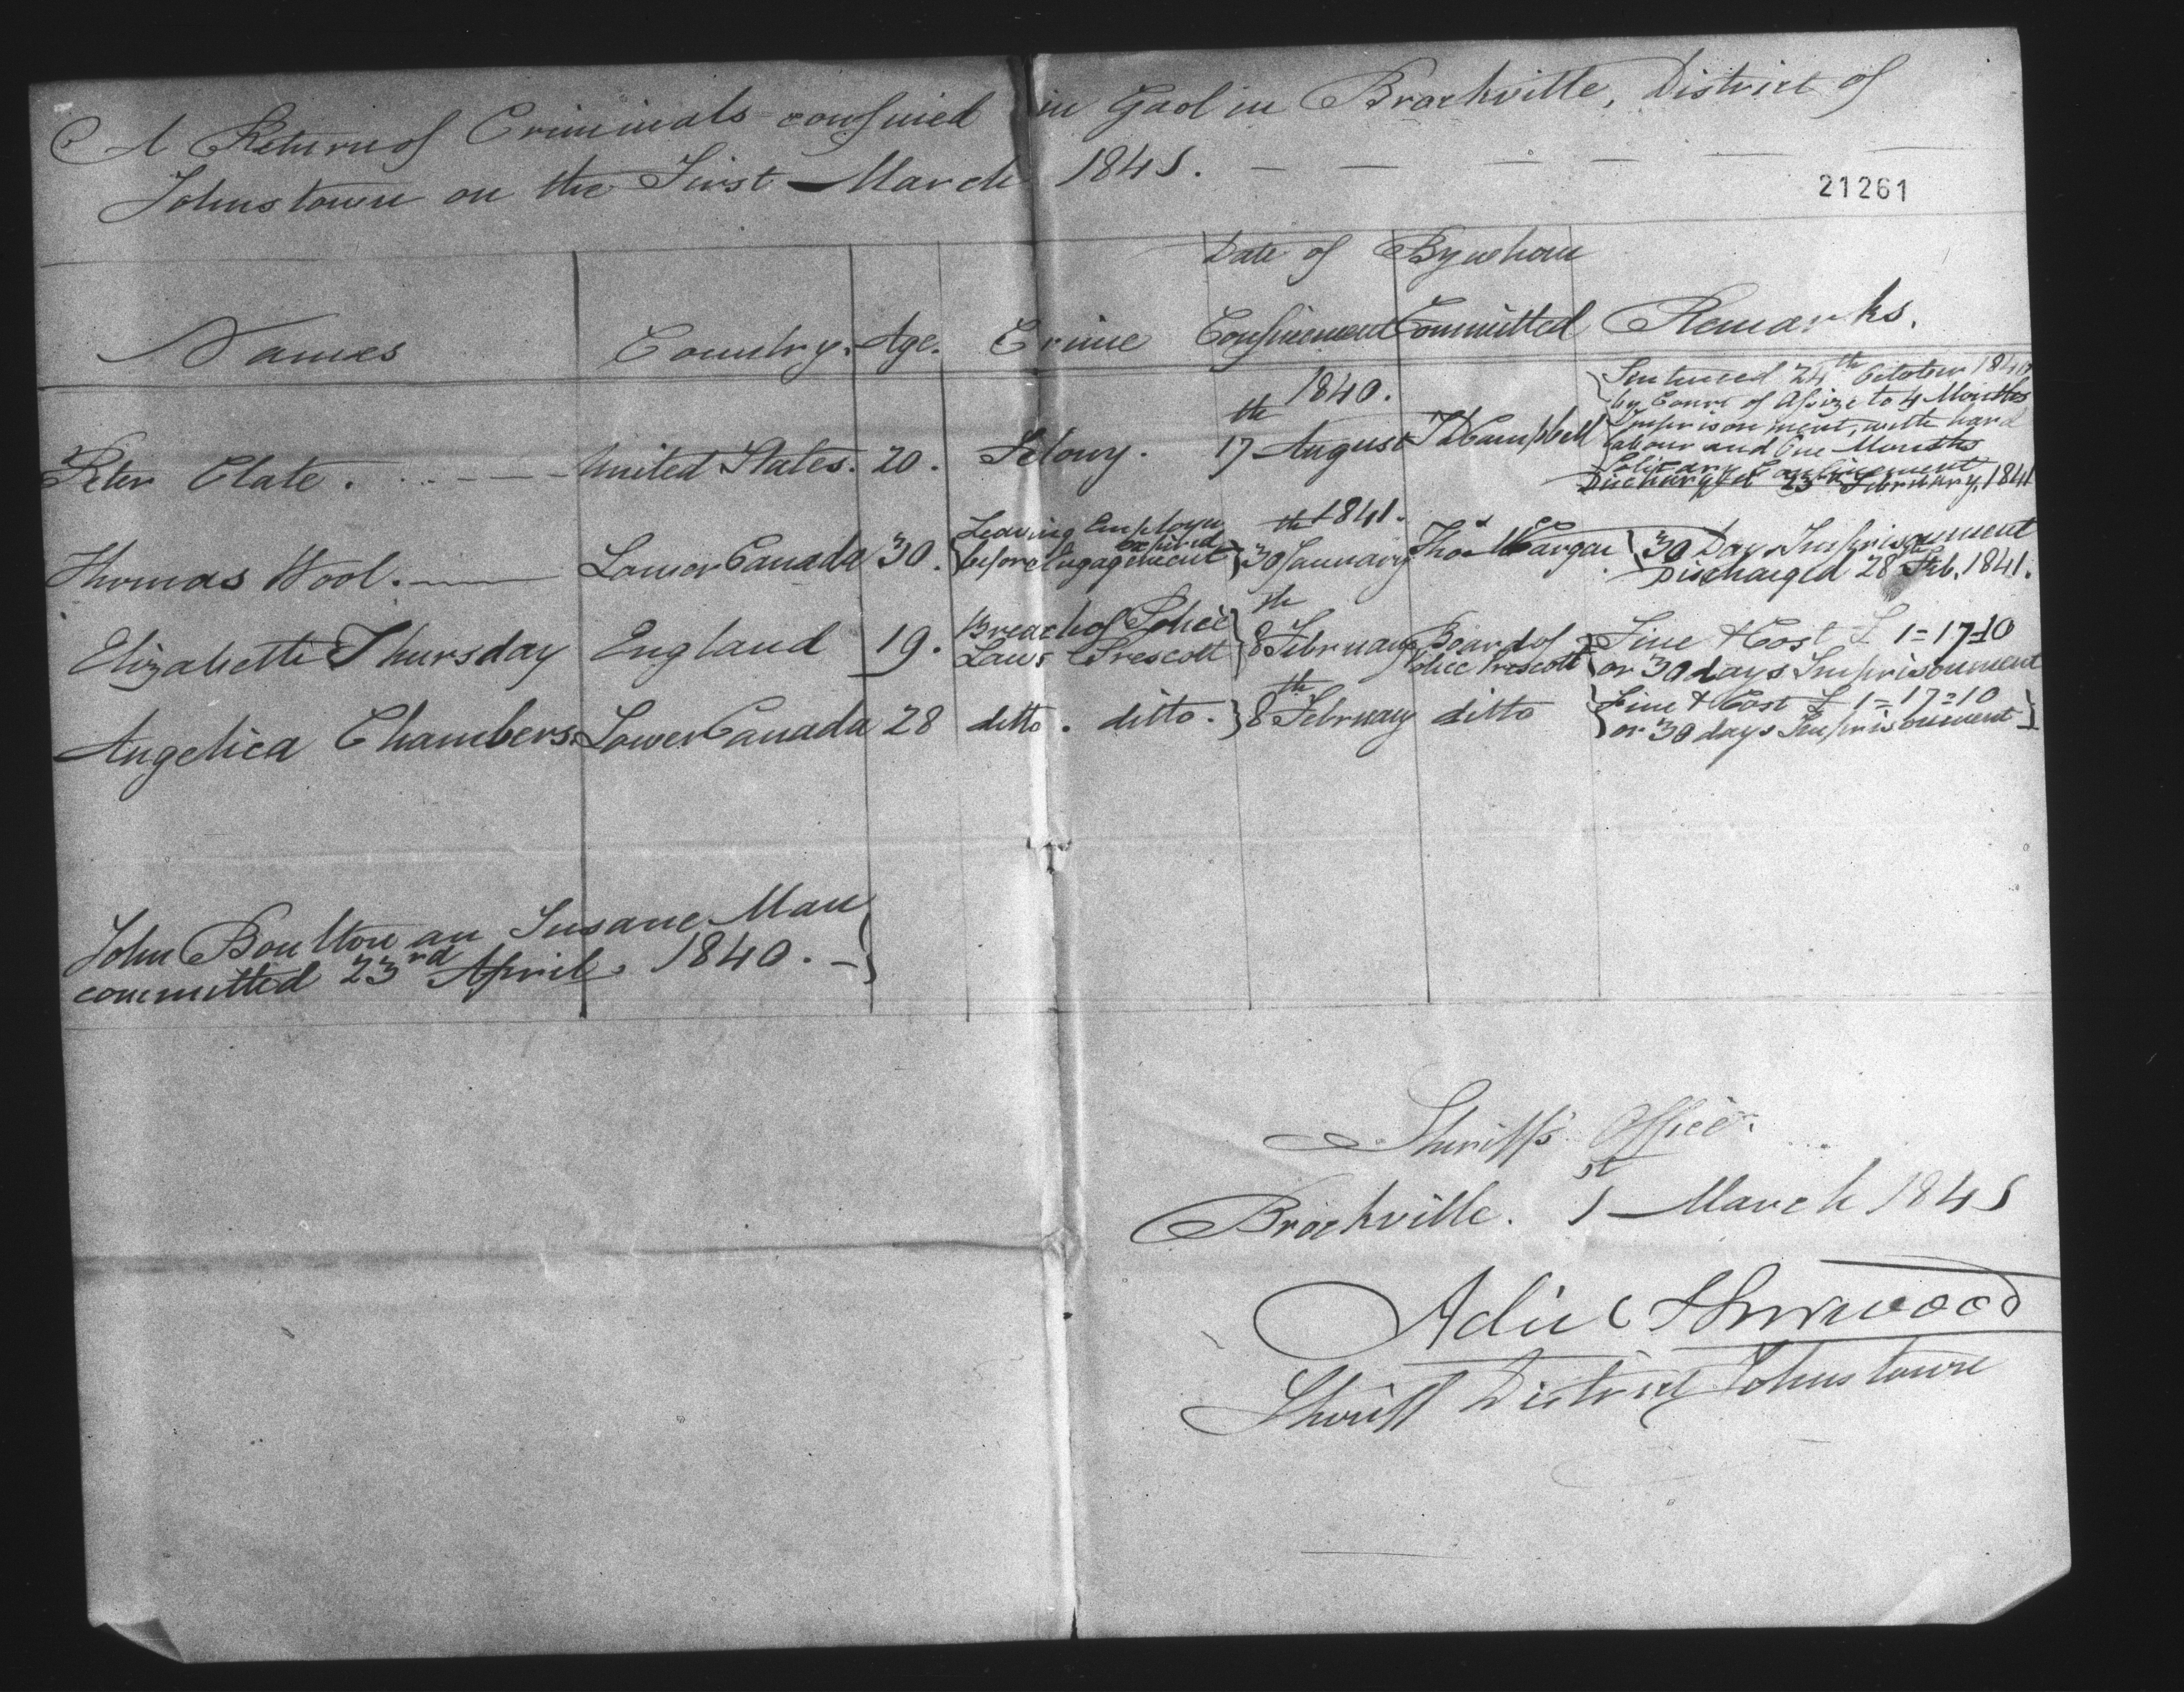 A Return of Criminals confined in Gaol in Brockville, District of
Johnstown on the First March 1841.
21261
Names Country. Age. Crime Date of Confinement By whom Committed Remarks.
Peter Clate. United States. 20. Felony. 1840. 17th August T D Campbell Sentenced 24th October 1840
by Court of Assize to 4 Months
Imprisonment, with hard
labour and One Months
Solitary Confinement
Discharged 23rd February, 1841
Thomas Wool. Lower Canada 30. Leaving Employ before Engagement expired 1841. 30th January Thos 30 Days Imprisonment
Discharged 28th Feb. 1841.
Elizabeth Thursday England 19. Breach of Police Laws Prescott 8th February Board of Police Prescott Fine & Cost £ 1=17=10
or 30 days Imprisonment
Angelica Chambers Lower Canada 28 ditto. ditto. 8th February ditto Fine & Cost £ 1=17=10
or 30 days Imprisonment
John Boulton an Insane Man
committed 23rd April, 1840.
Sheriff's Office
Brockville. 1st March 1841
Adiel Sherwood
Sheriff District Johnstown